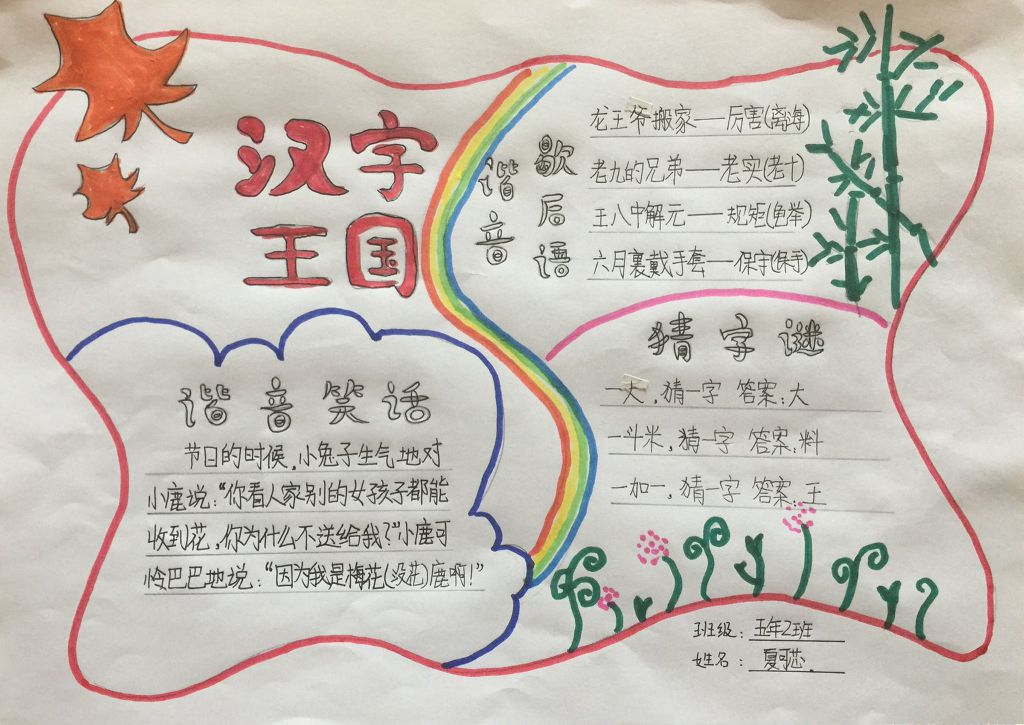 汉字
王国
谐音
歇后语
龙王爷搬家——厉害(离海)
老九的兄弟——老实(老十)
王八中解元——规矩(龟举)
六月裏戴手套——保守(保手)
猜字谜
一大,猜一字 答案:大
一斗米,猜一字 答案:料
一加一,猜一字 答案:王
谐音笑话
节日的时候,小兔子生气地对
小鹿说:“你看人家别的女孩子都能
收到花,你为什么不送给我?”小鹿可
怜巴巴地说:“因为我是梅花(没花)鹿啊!”
班级:五年2班
姓名:夏可芯.